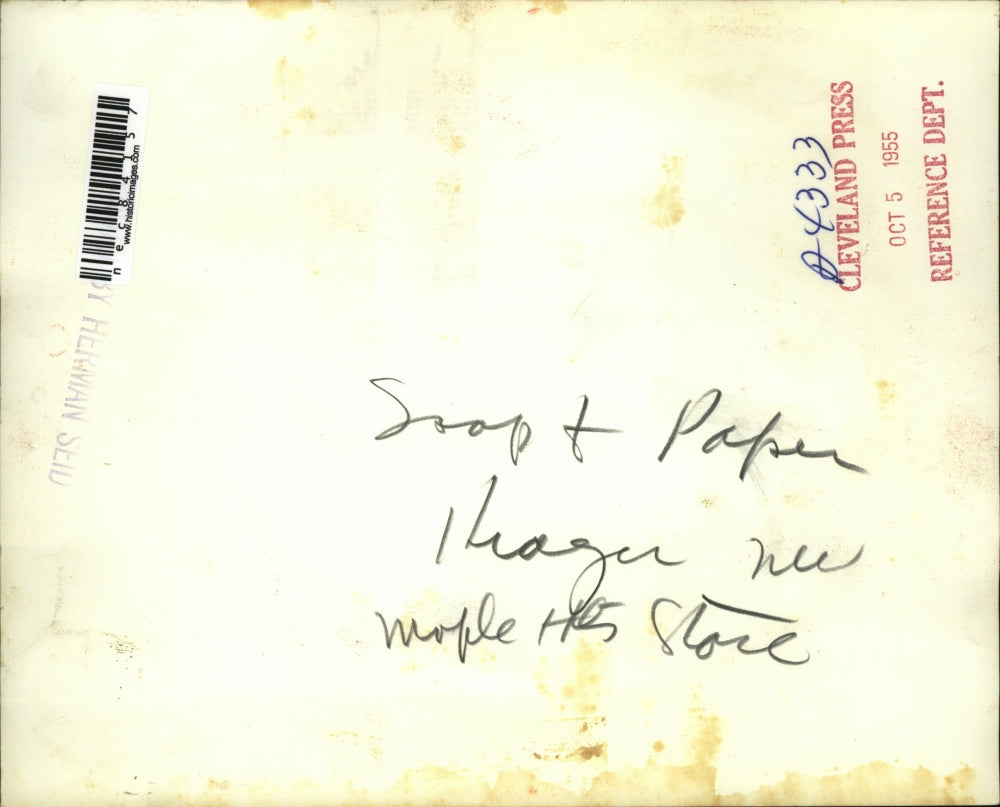 Soap & Paper
Kroger new
Maple Hts Store
A4333
CLEVELAND PRESS
OCT 5 1955
REFERENCE DEPT.
nec84157
www.historicimages.com
BY HERMAN SEID